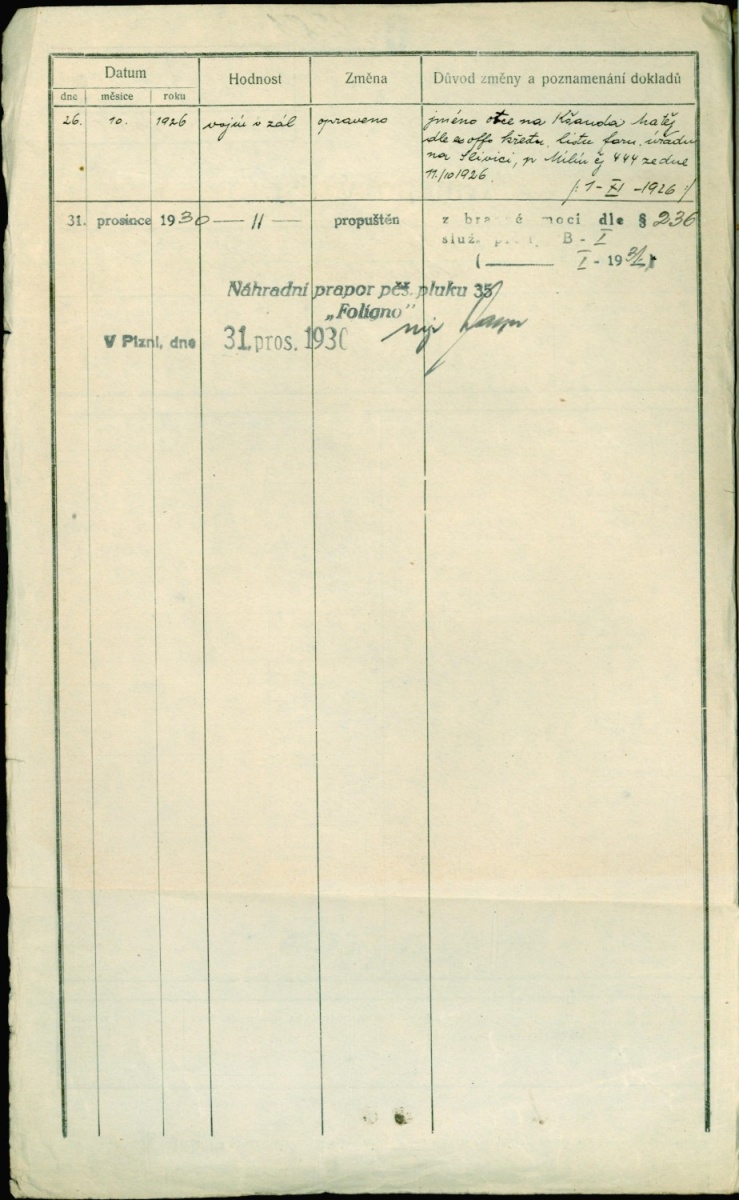 Datum Hodnost Změna Důvod změny a poznamenání dokladů
dne měsíce roku
26. 10. 1926 vojín v zál opraveno jméno otce na Kšanda Matěj
dle exoffo křestn. listu farn. úřadu
na Slivici, p Milín čj 444 ze dne
11./10 1926.
/: 1 - XI - 1926 :/
31. prosince 1930 — 11 — propuštěn z branné moci dle § 236
služ. B - I
( I - 1931)
Náhradní prapor pěš. pluku 35
„Foligno"
V Plzni, dne 31. pros. 1930